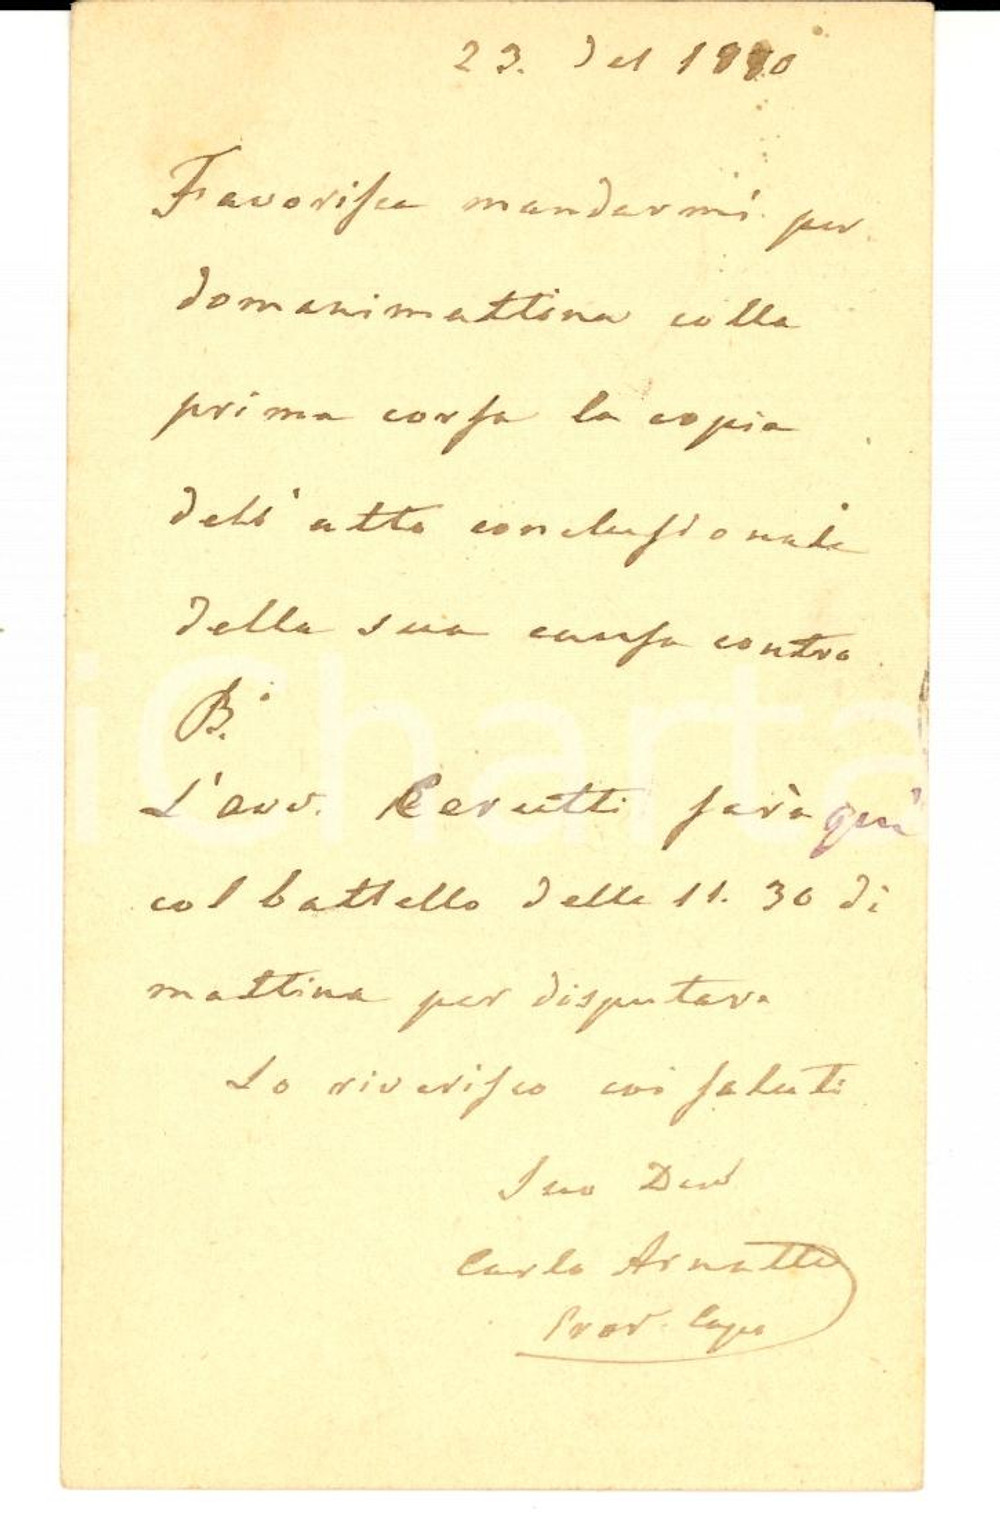 23. 1880
Favorisca mandarmi per
domani mattina colla
prima corsa la copia
dell'atto conclusionale
della sua causa contro
B.
L'avv. Cerutti sarà quì
col battello delle 11.30 di
mattina per disputare
Lo riverisco coi saluti
Suo Dev
Carlo
Capo
iCharta